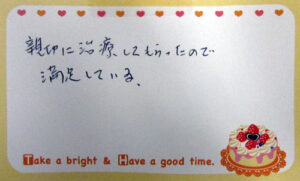 親切に治療してもらったので
満足している。
Take a bright & Have a good time.